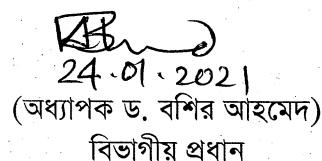 24.01.2021
(অধ্যাপক ড. বশির আহমেদ)
বিভাগীয় প্রধান